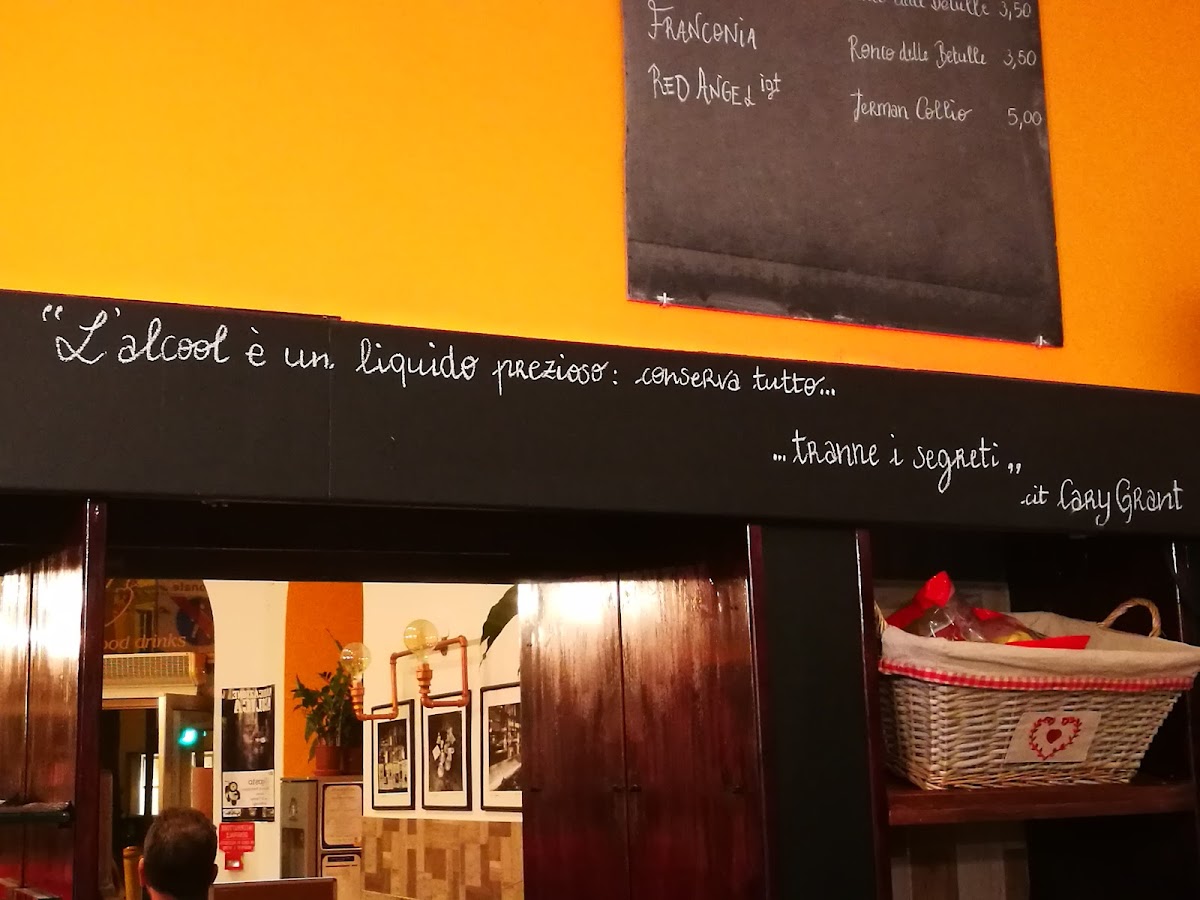 delle Betulle 3,50
FRANCONIA
Ronco delle Betulle 3,50
RED ANGEL igt
Jerman Collio 5,00
“L'alcool è un liquido prezioso: conserva tutto...
...tranne i segreti„
cit Cary Grant
ood drinks